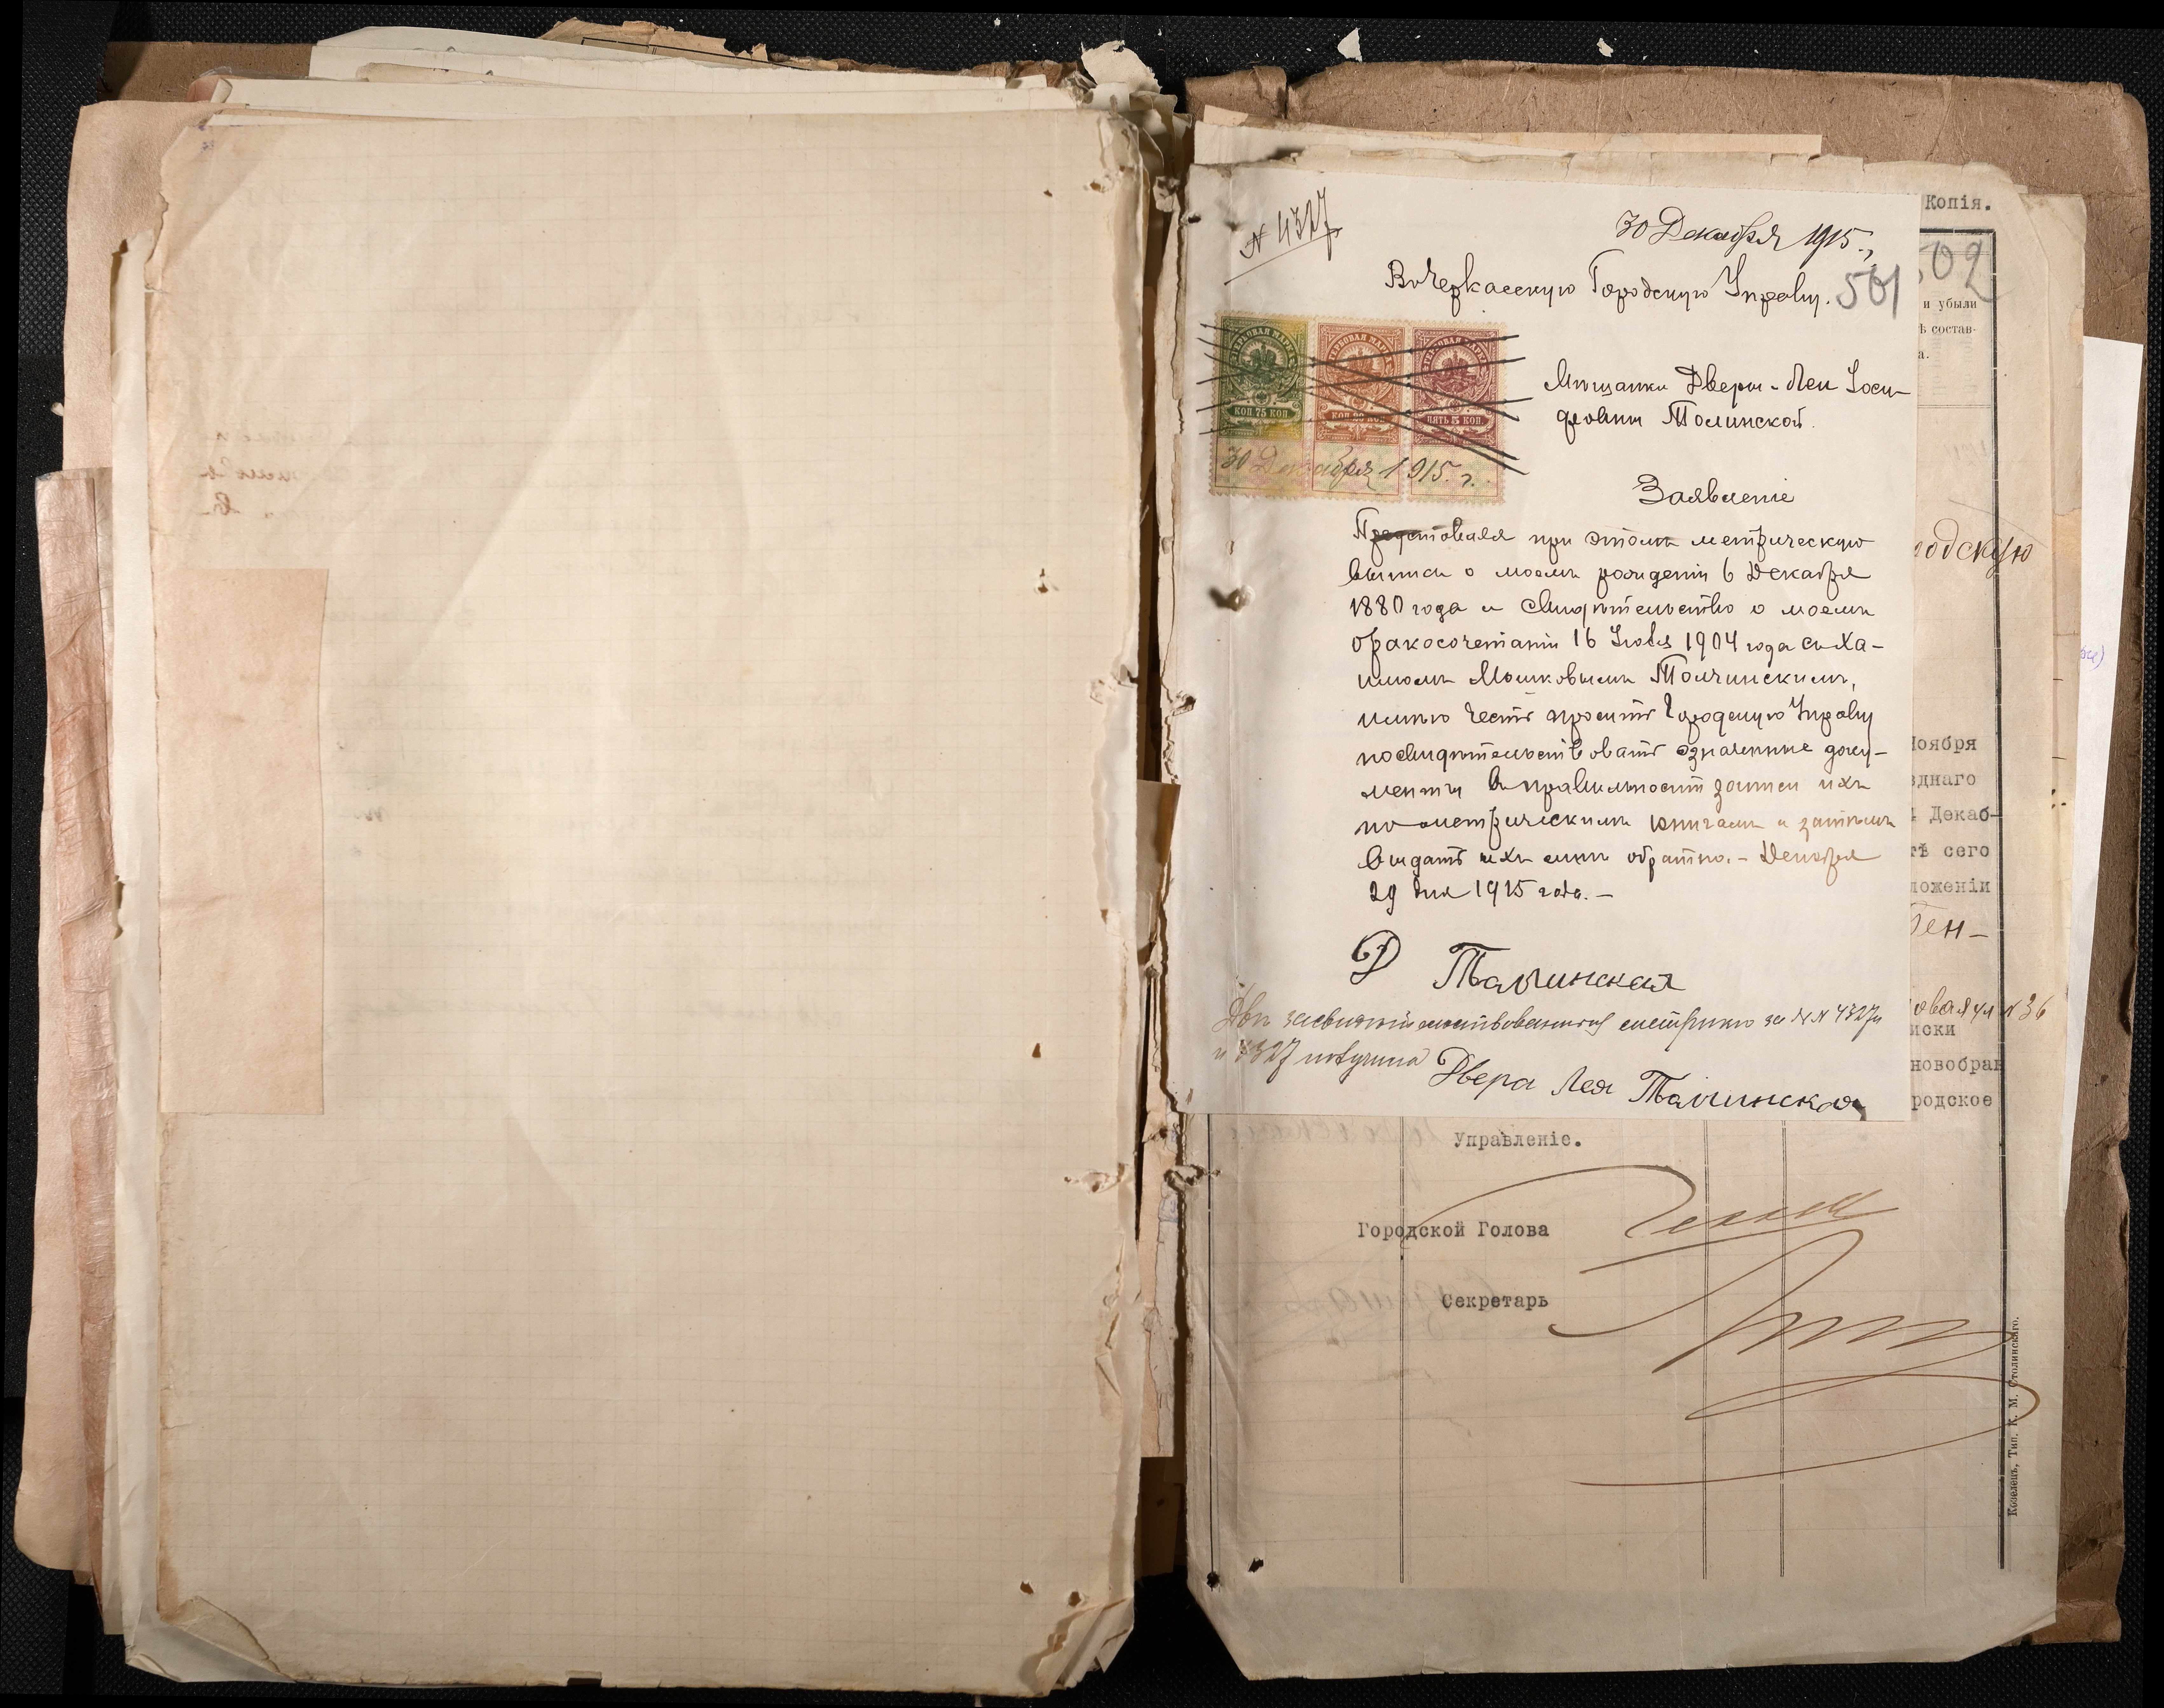 № 4327
30 Декабря 1915 г.
Въ Черкасскую Городскую Управу.
501
ГЕРБОВАЯ МАРКА
ГЕРБОВАЯ МАРКА
ГЕРБОВАЯ МАРКА
КОП 75 КОП
КОП 20 КОП
ПЯТЬ 5 КОП.
30 Декабря 1915. г.
Мѣщанки Двери-Леи Іоси-
фовны Толчинской.
Заявленіе
Представляя при этомъ метрическую
выпись о моемъ рожденіи 6 Декабря
1880 года и свидѣтельство о моемъ
бракосочетаніи 16 Іюля 1904 года съ Ха-
имомъ Мошковымъ Толчинскимъ,
имѣю честь просить Городскую Управу
посвидѣтельствовать означенные доку-
менты въ правильности записи ихъ
по метрическимъ книгамъ и затѣмъ
выдать ихъ мнѣ обратно. - Декабря
29 дня 1915 года. -
Д Талчинская
Двѣ засвидѣтельствованныя метрики за №№ 4327
и 4327 получила Двера Лея Талчинская
Копія.
502
и убыли
ѣ состав-
а.
родскую
Ноября
зднаго
Декаб-
тѣ сего
ложеніи
бен-
овая ул № 36
иски
новобран
родское
Управленіе.
Городской Голова
Секретарь
Козелецъ, Тип. К. М. Столинскаго.